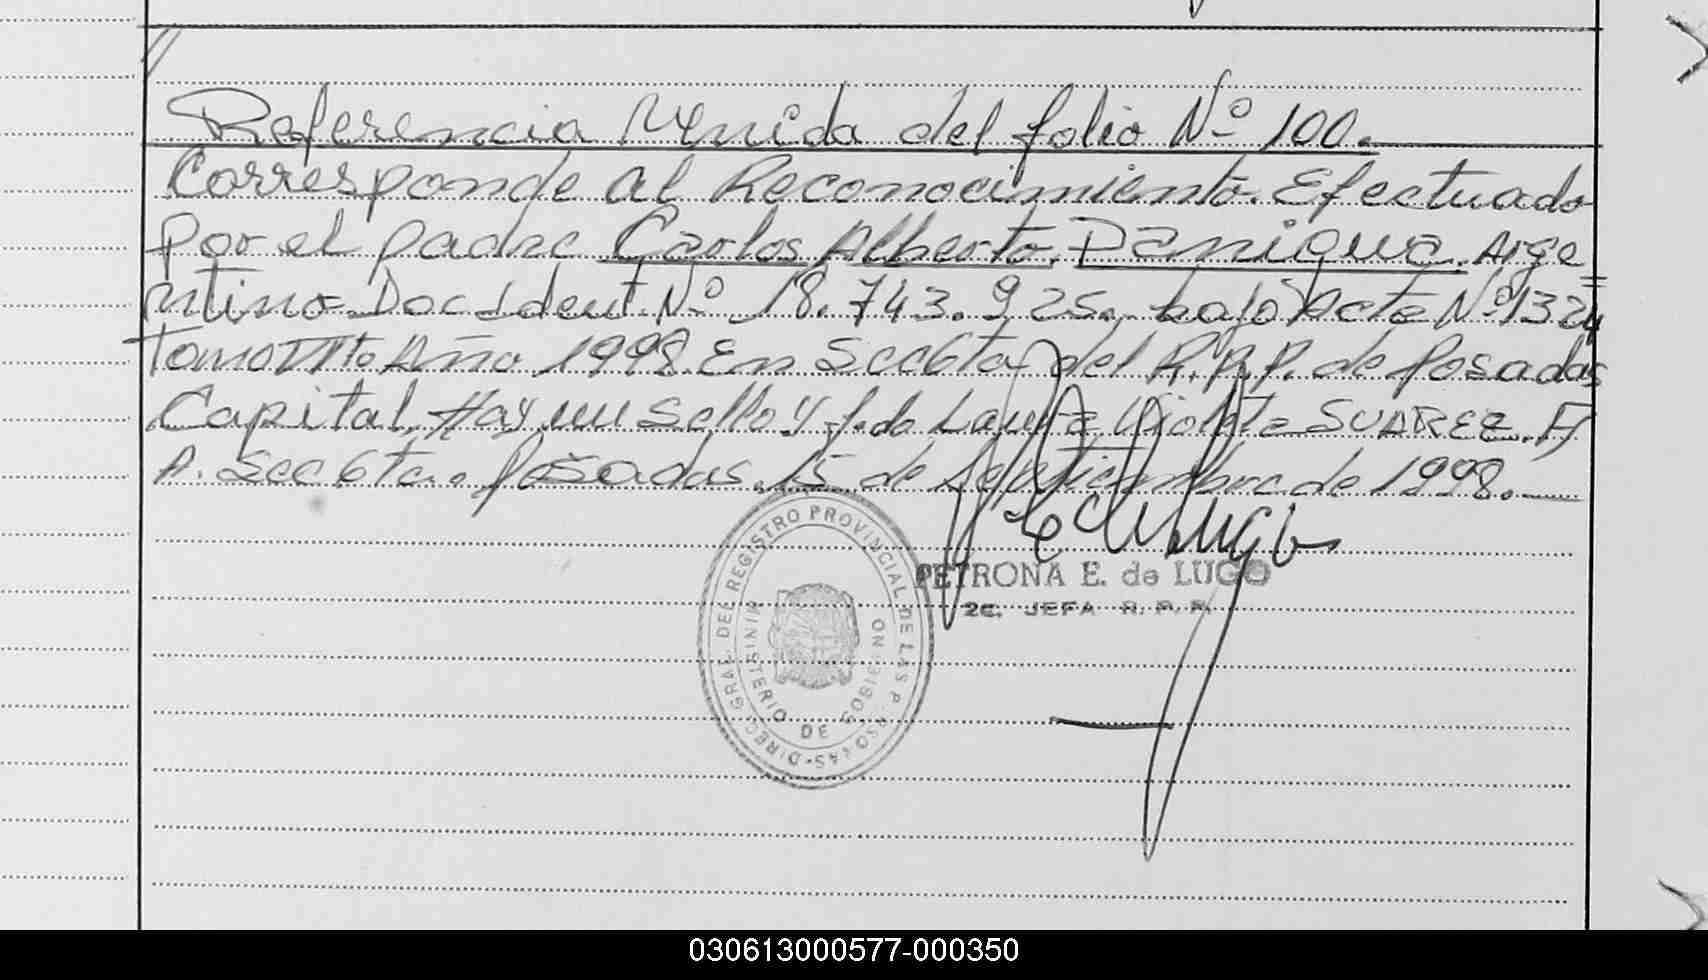 Referencia Venida del folio Nº 100.
Corresponde al Reconocimiento. Efectuado
Por el padre Carlos Alberto Paniqua. Arge=
ntino Doc Ident. Nº 18.743.925. bajo Acta Nº 1324
Tomo VIIº Año 1998. En Secc 6ta del R.P.P. de Posadas
Capital. Hay un Sello y f.do Laura Violeta SUAREZ.
A. Secc 6ta. Posadas. 15 de Septiembre de 1998.
PETRONA E. de LUGO
2a. JEFA R. P. P.
DIREC. GRAL. DEL REGISTRO PROVINCIAL DE LAS PERSONAS
MINISTERIO DE GOBIERNO
030613000577-000350